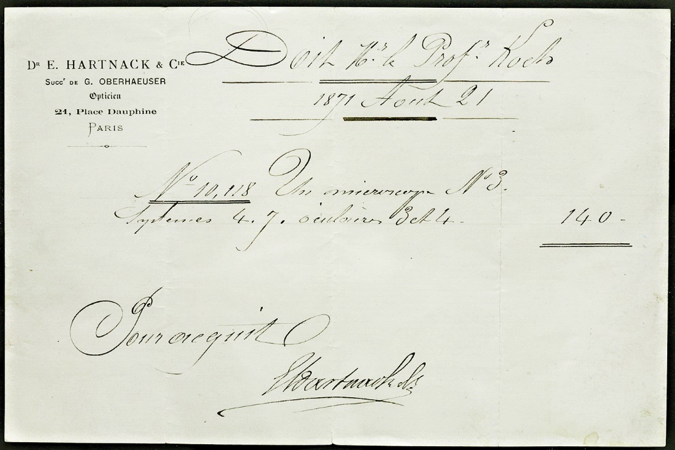 DR E. HARTNACK & CIE
SUCCR DE G. OBERHAEUSER
Opticien
21, Place Dauphine
PARIS
Doit Mr. le Profr. Koch
1871 Aout 21
No 10,118 Un microscope No 3.
Systemes 4. 7. oculaires 3 et 4. 140 -
Pour acquit
EHartnack & Co